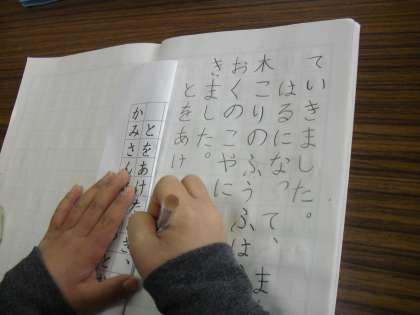 ていきました。
はるになって、ま
木こりのふうふは
おくのこやに
きました。
とをあけ
とをあけた
かみさん